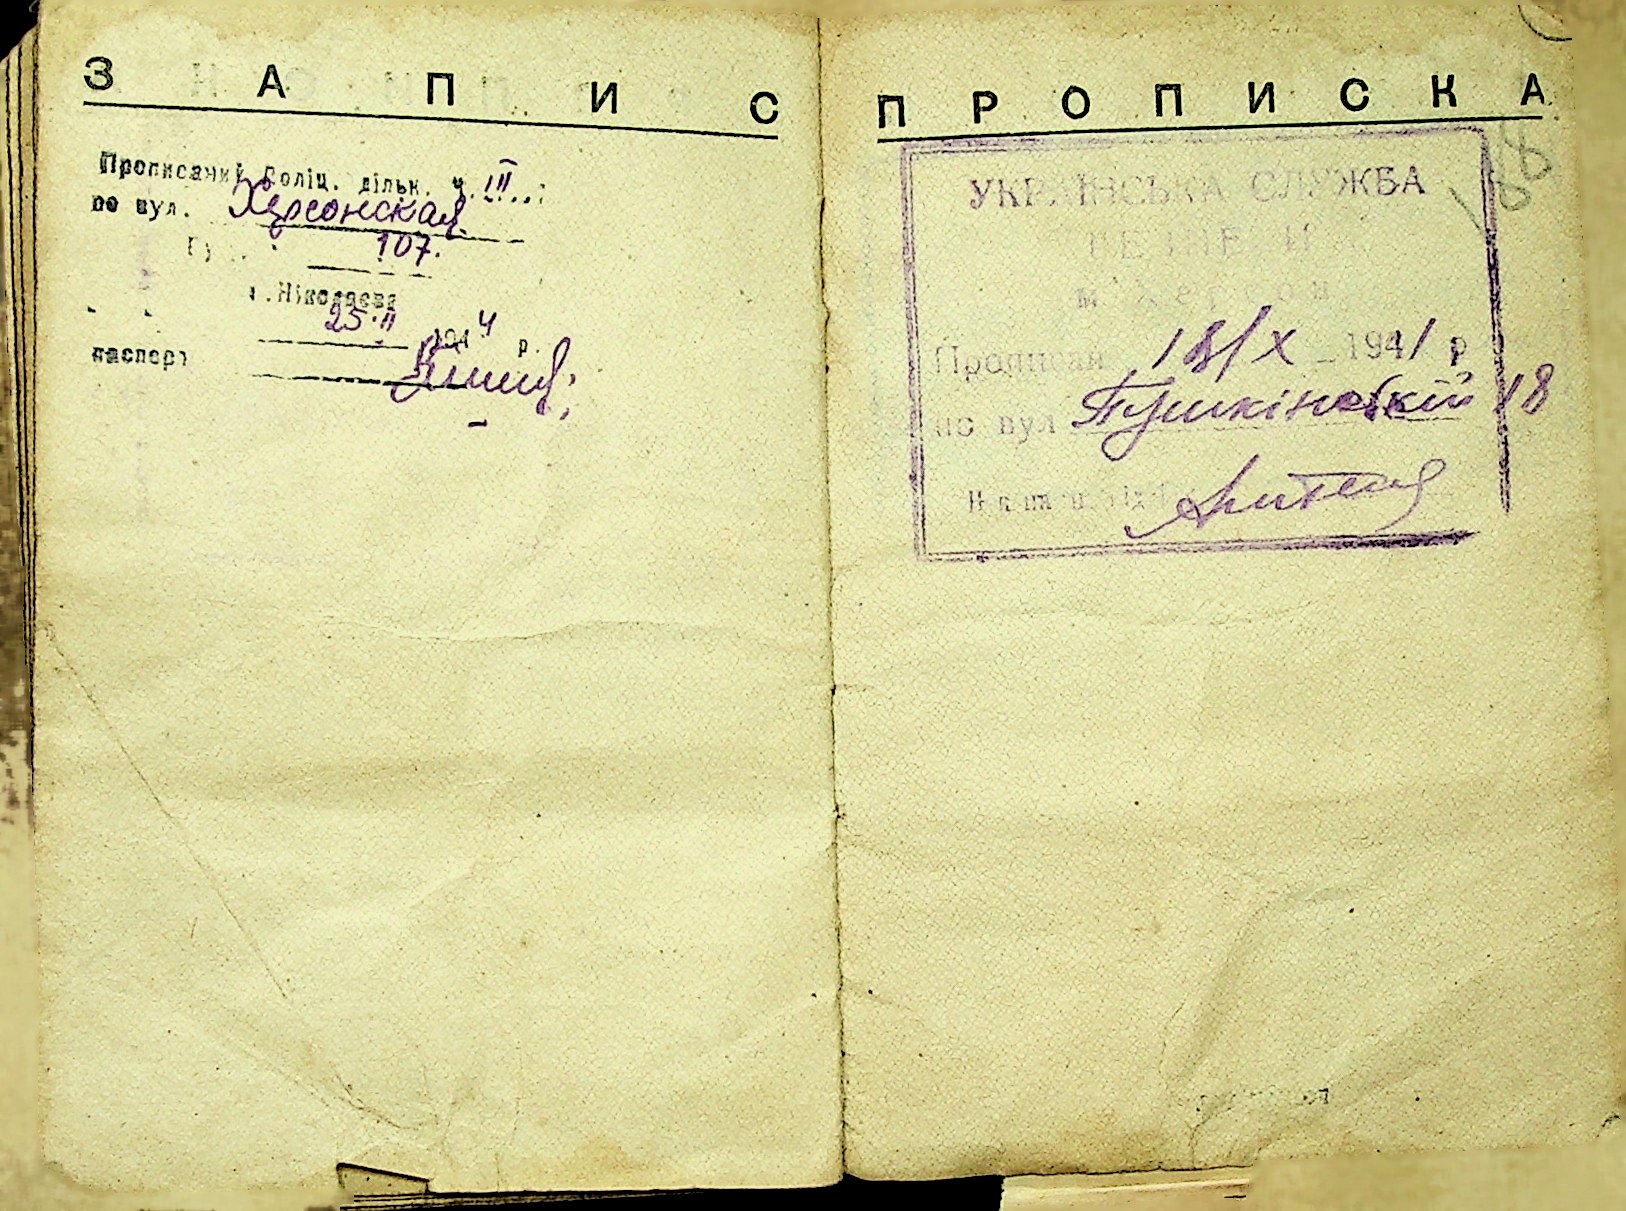 ЗАПИС
Прописаний Поліц. дільн. ч. III
по вул. Херсонская
107.
м. Ніколаєва
25.II 1944 р.
паспорт
ПРОПИСКА
УКРАЇНСЬКА СЛУЖБА
БЕЗПЕКИ
м Херсон
Прописан 18/X 1941 р
по вул Пушкінській 18